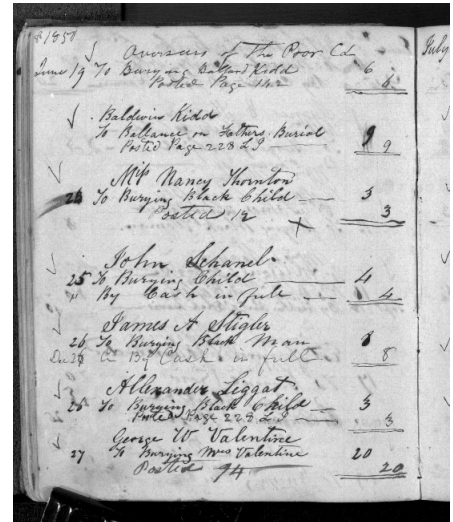 1850
Overseers of the Poor Cd
June 19 To Burying Ballard Kidd 6
Posted Page 142 6
Baldwin Kidd
To Ballance on Fathers Burial 9
Posted Page 228 L I 9
Miss Nancy Thornton
24 To Burying Black Child 3
Posted 12 3
John Schanel
25 To Burying Child 4
" By Cash in full 4
James A Stigler
26 To Burying Black Man 8
26 By Cash in full 8
Allexander Liggat
26 To Burying Black Child 3
Posted Page 228 L I 3
George W Valentine
27 To Burying Mrs Valentine 20
Posted 94 20
July